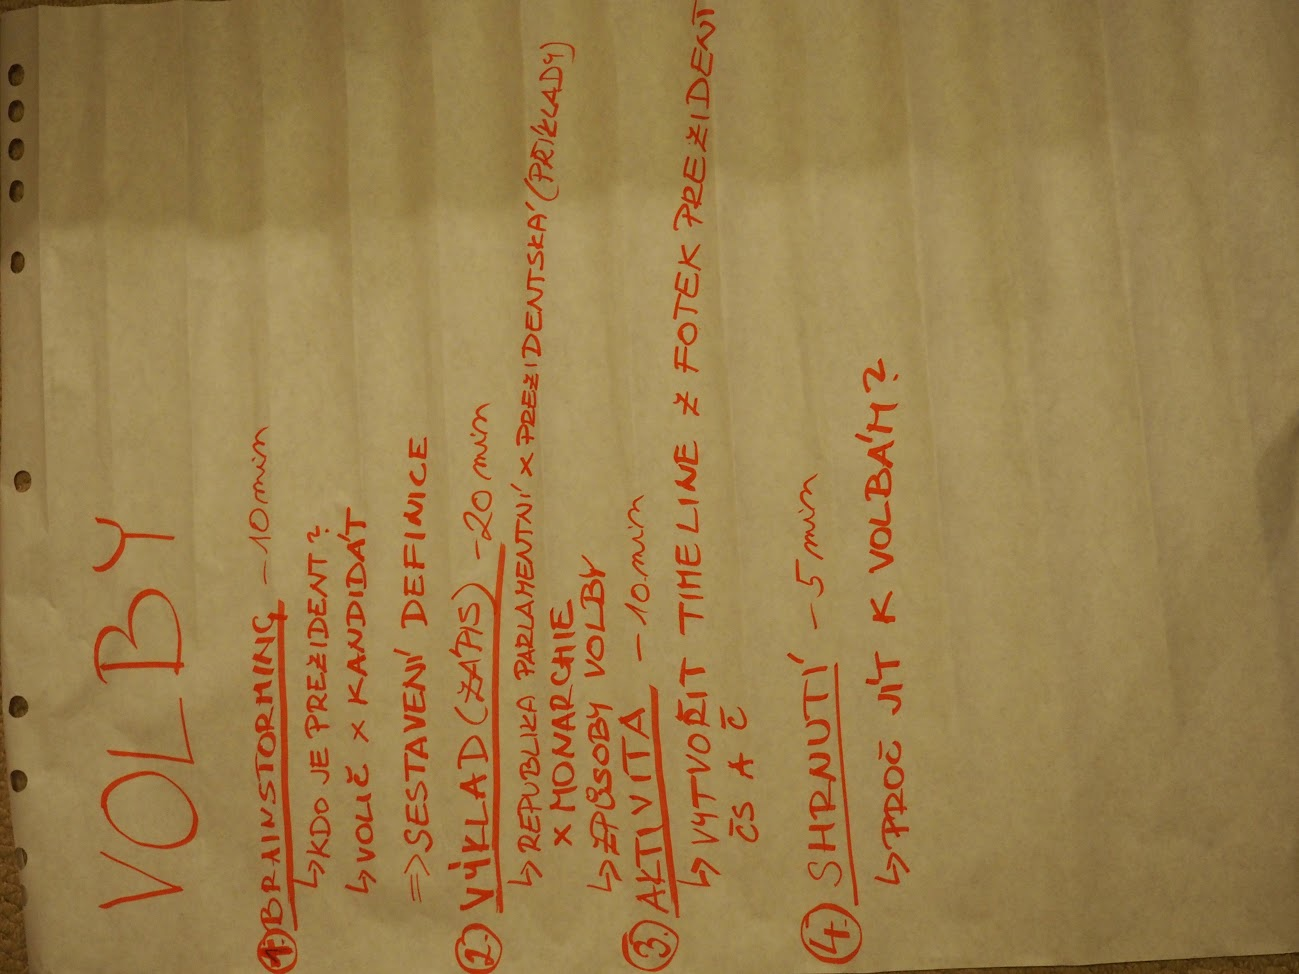 VOLBY
1. BRAINSTORMING - 10 min
↳ KDO JE PREZIDENT?
↳ VOLIČ X KANDIDÁT
⇒ SESTAVENÍ DEFINICE
2. VÝKLAD (ZÁPIS) - 20 min
↳ REPUBLIKA PARLAMENTNÍ X PREZIDENTSKÁ (PŘÍKLADY)
X MONARCHIE
↳ ZPŮSOBY VOLBY
3. AKTIVITA - 10 min
↳ VYTVOŘIT TIMELINE Z FOTEK PREZIDENT
ČS A Č
4. SHRNUTÍ - 5 min
↳ PROČ JÍT K VOLBÁM?